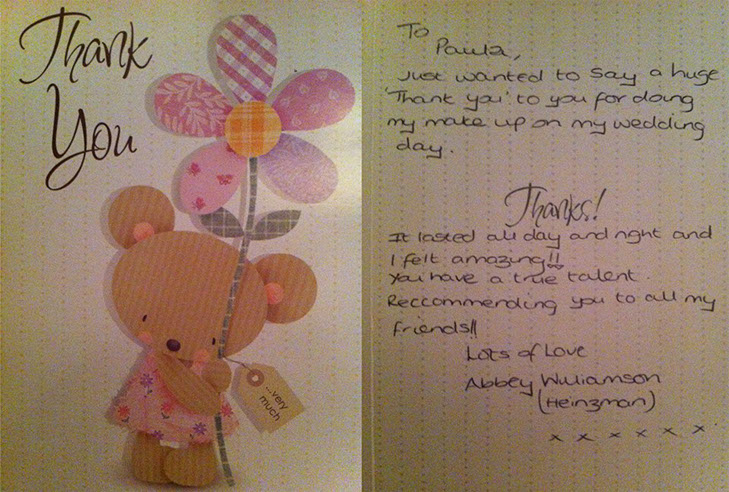 Thank
You
...very
much
To
Paula,
Just wanted to say a huge
'Thank you' to you for doing
my make up on my wedding
day.
Thanks!
It lasted all day and night and
I felt amazing!!
You have a true talent.
Reccommending you to all my
friends!!
Lots of Love
Abbey Williamson
(Heinzman)
x x x x x x